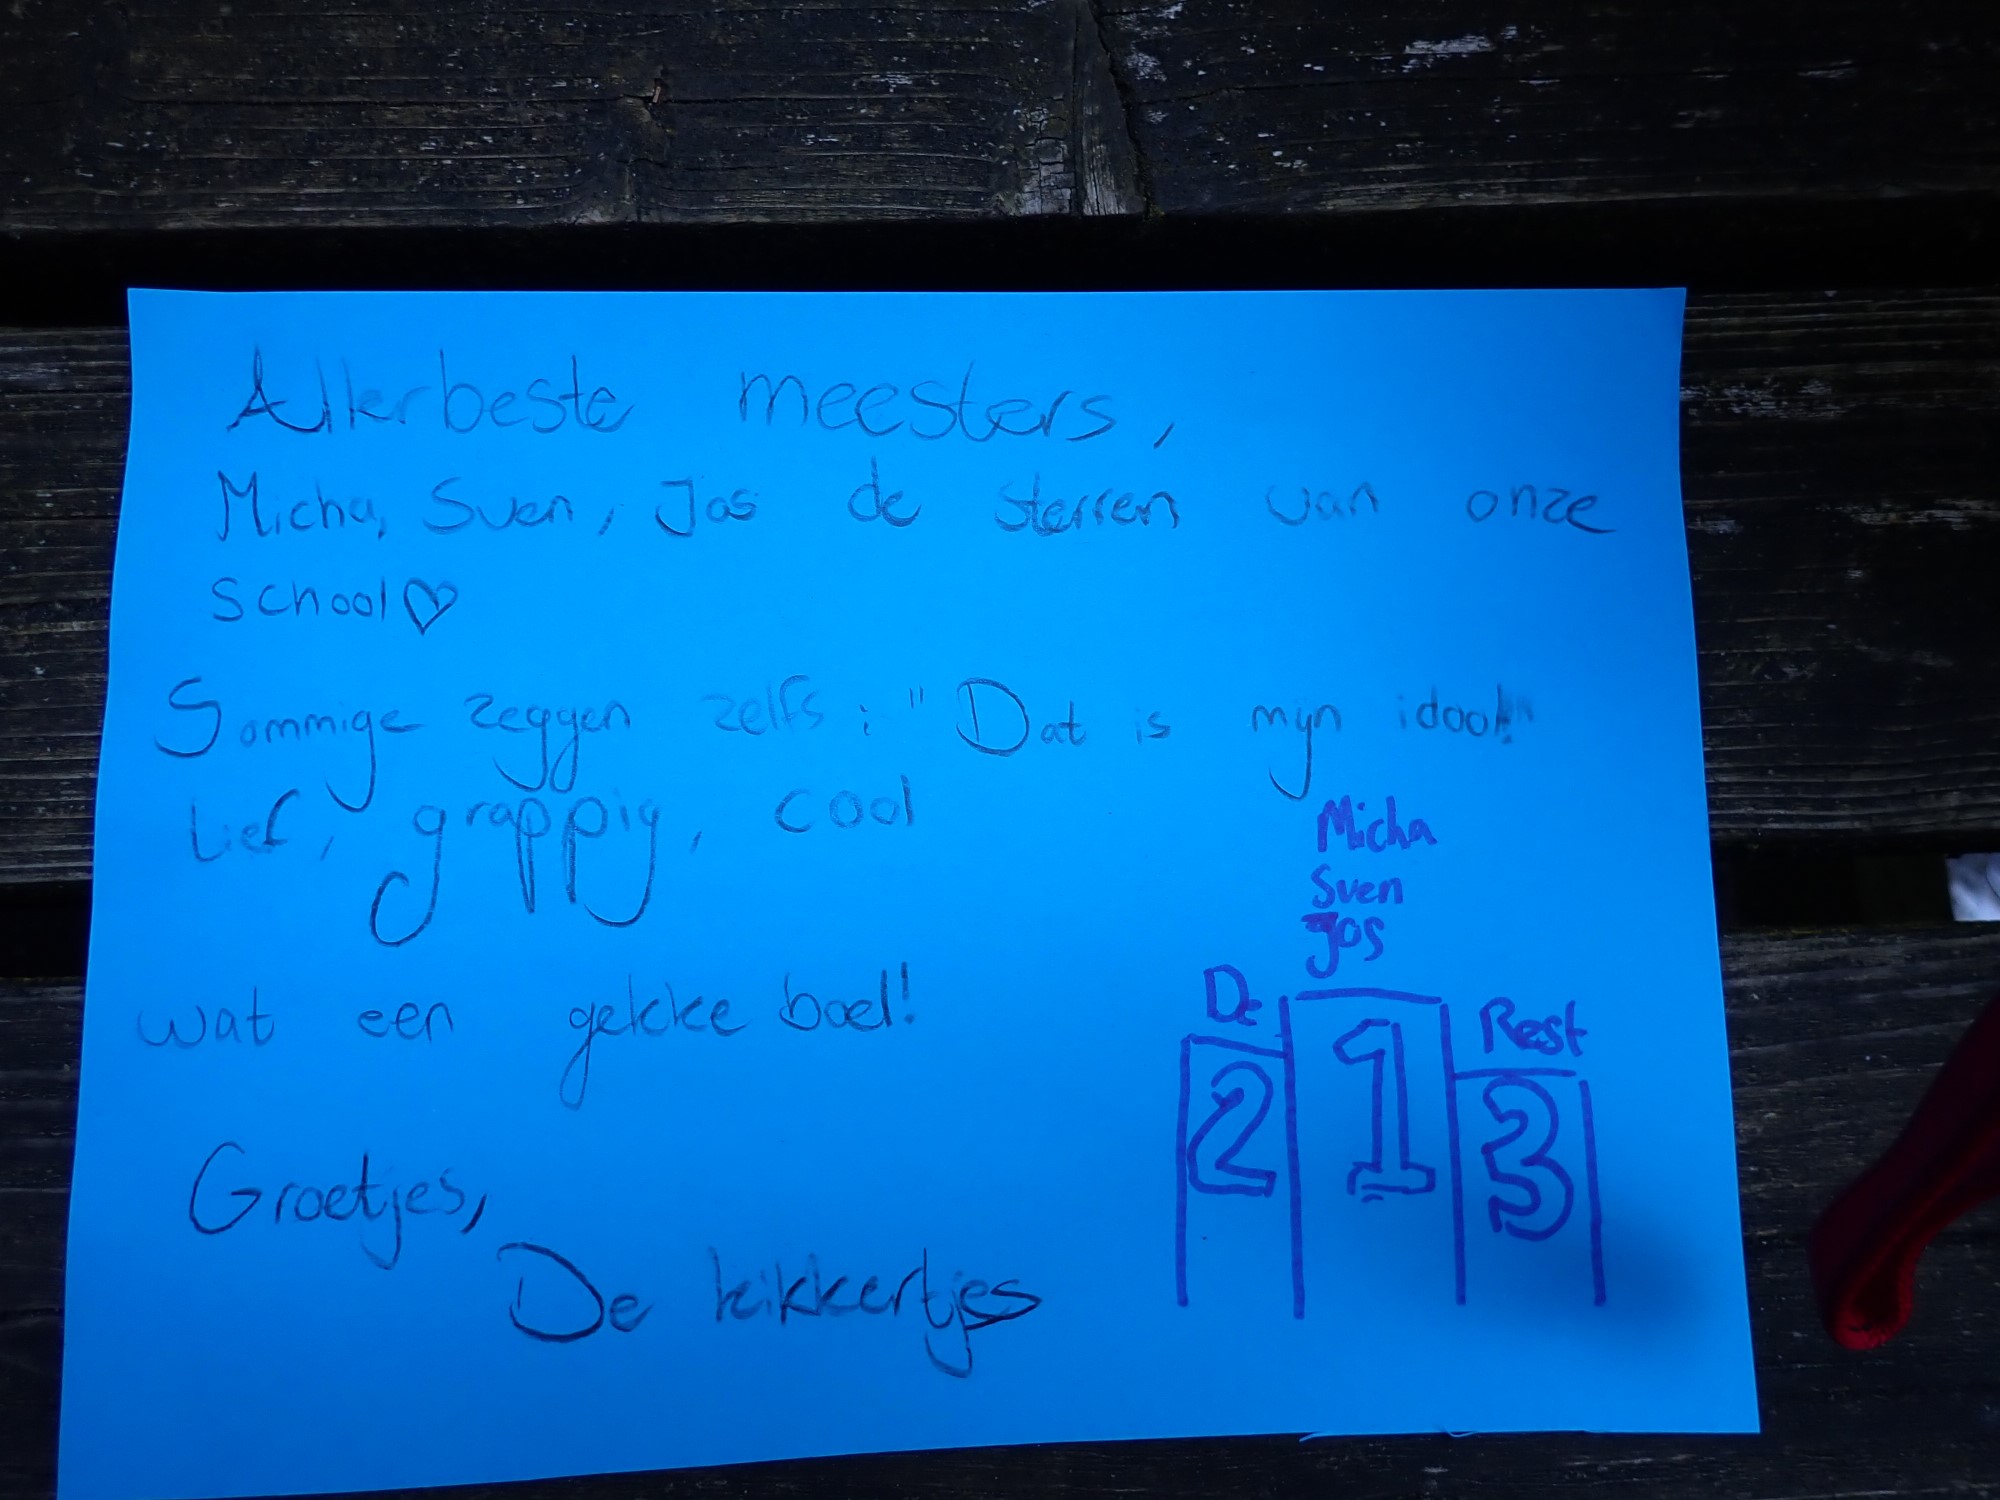 Allerbeste meesters,
Micha, Sven, Jos de sterren van onze
school♡
Sommige zeggen zelfs: "Dat is mijn idool!"
Lief, grappig, cool
wat een gekke boel!
Groetjes,
De kikkertjes
Micha
Sven
Jos
De
Rest
2
1
3